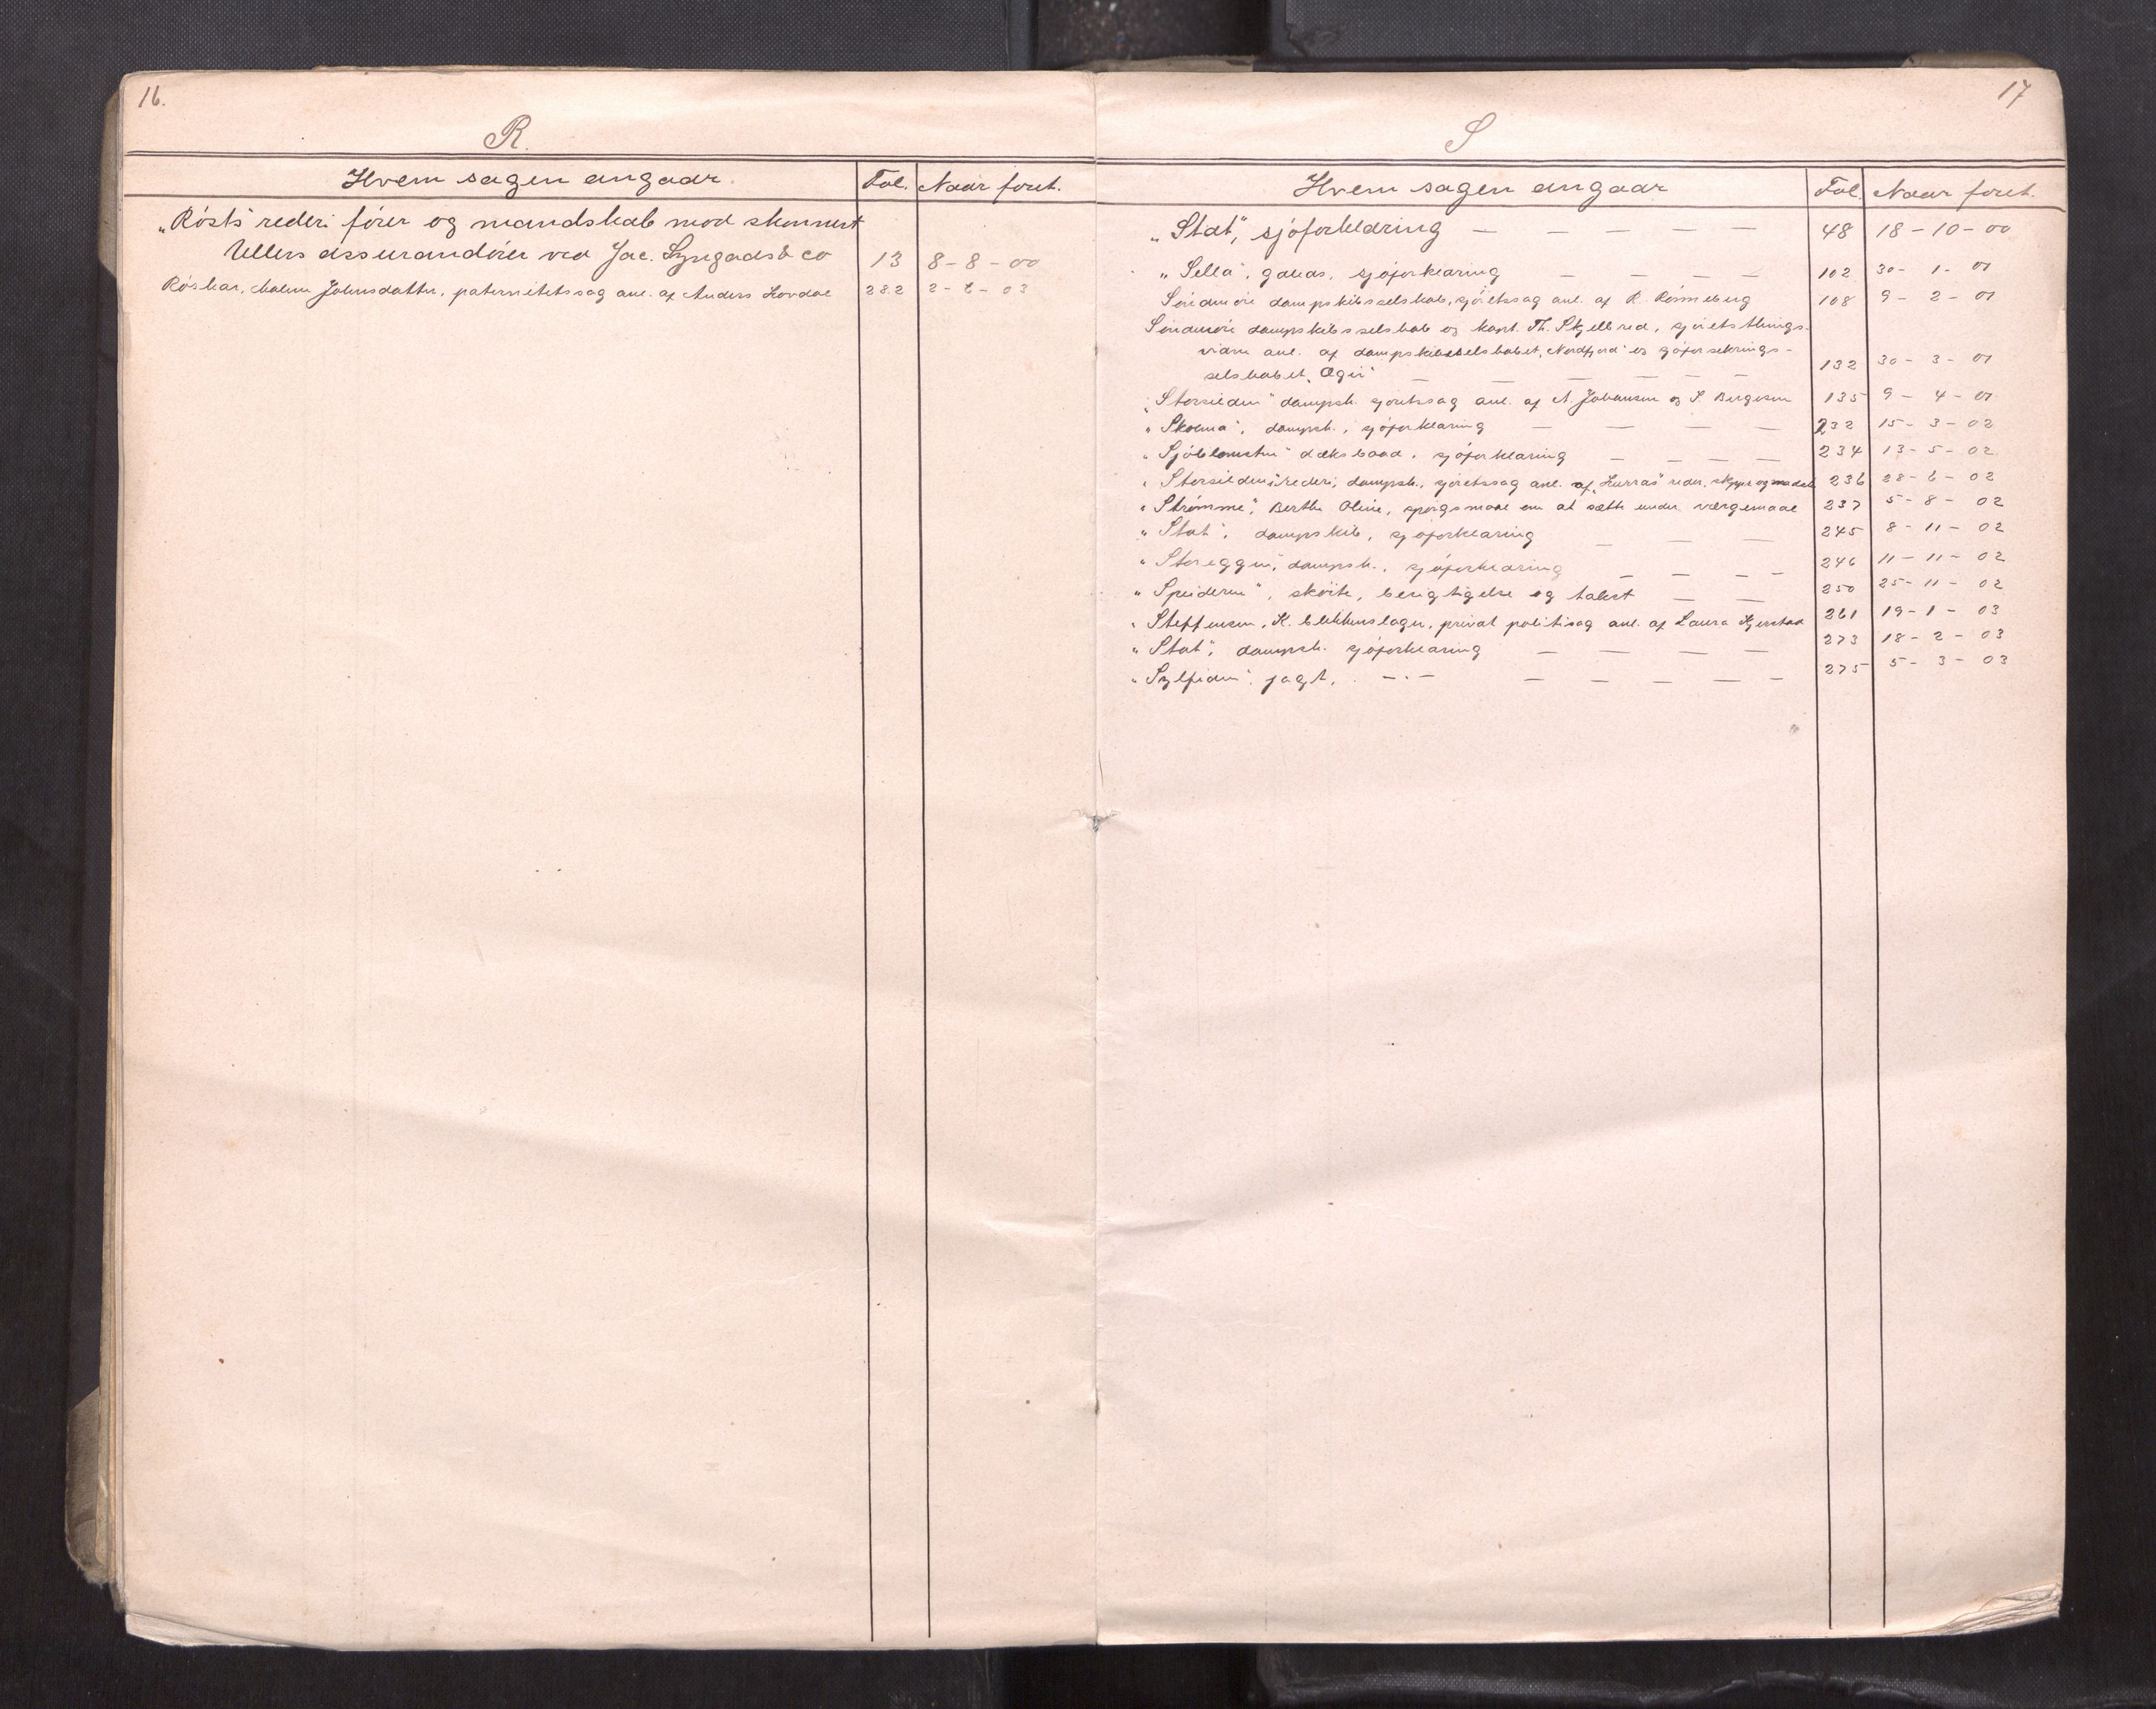 16.
R.
Hvem sagen angaar. Fol. Naar foret.
„Røsts" rederi fører og mandskab mod skonnert
Ullers assurandører ved Jac. & co 13 8-8-00
Røskar, Malene Johnsdatter, paternitetssag anl. af Anders Hovdal 282 2-6-03
17
S
Hvem sagen angaar Fol. Naar foret.
„Stat", sjøforklaring — — — — — 48 18-10-00
„Sella", galeas, sjøforklaring — — — — 102 30-1-01
Søndmøre dampskibsselskab, sjøretssag anl. af R. Rønneberg 108 9-2-01
Søndmøre dampskibsselskab og kapt. Th. Skjelbred, sjøretsthings-
vidne anl. af dampskibsselskabet „Nordfjord" og sjøforsekrings-
selskabet „Ægir" — — — — — — 132 30-3-01
„Storsilden" dampsk. sjøretssag anl. af A. Johansen og S. Bergesen 135 9-4-01
„Skolma", dampsk., sjøforklaring — — — — 232 15-3-02
„Sjøblomsten" dæksbaad, sjøforklaring — — — — 234 13-5-02
„Storsilden"s rederi, dampsk., sjøretssag anl. af „Hurras" reder, skipper og mandsk. 236 28-6-02
„Strømme", Berthe Oline, spørgsmaal om at sætte under værgemaal 237 5-8-02
„Stat", dampskib, sjøforklaring — — — 245 8-11-02
„Storeggen", dampsk., sjøforklaring — — — — 246 11-11-02
„Speideren", skøite, besigtigelse og takst — — 250 25-11-02
„Steffensen, K. blikkenslager, privat politisag anl. af Laura Kjerstad 261 19-1-03
„Stat", dampsk. sjøforklaring — — — — 273 18-2-03
„Sylfiden", jagt, —·— — — — — — 275 5-3-03